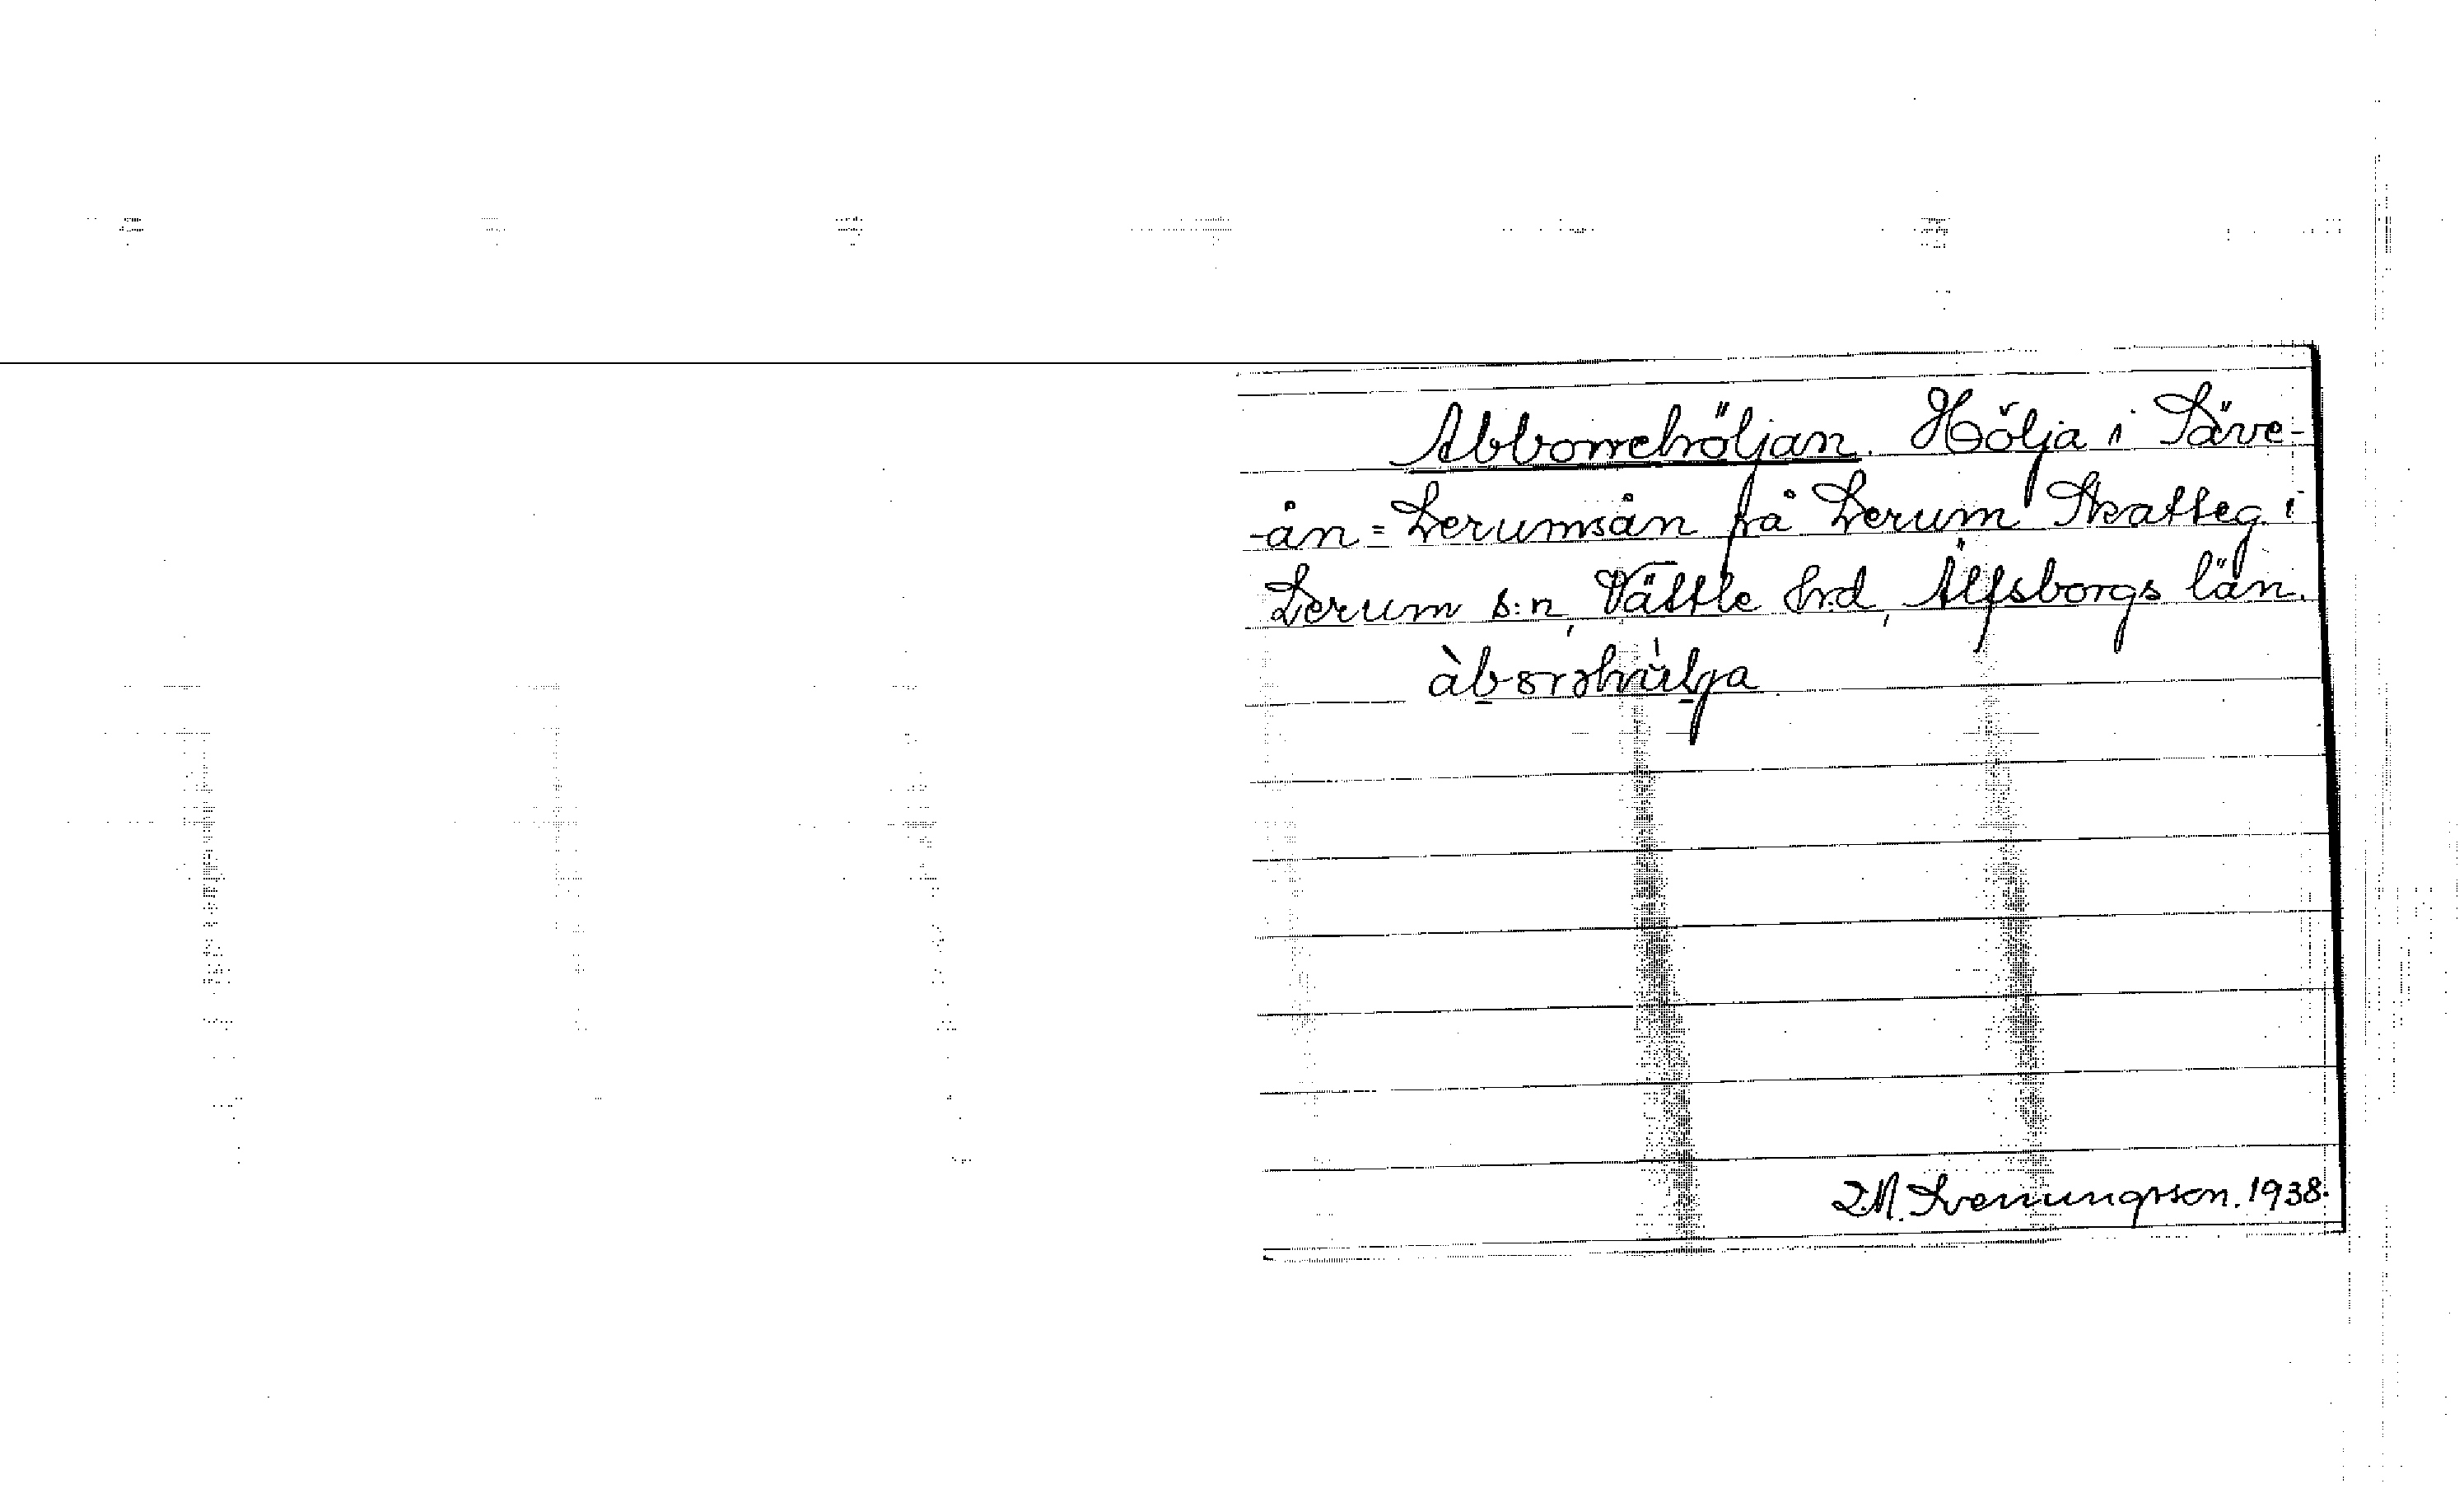 Abborrehöljan. Hölja i Säve-
-ån = Lerumsån på Lerum Skatteg. i
Lerum s:n, Vättle hrd, Älfsborgs län.
D.M. Svenungsson. 1938.